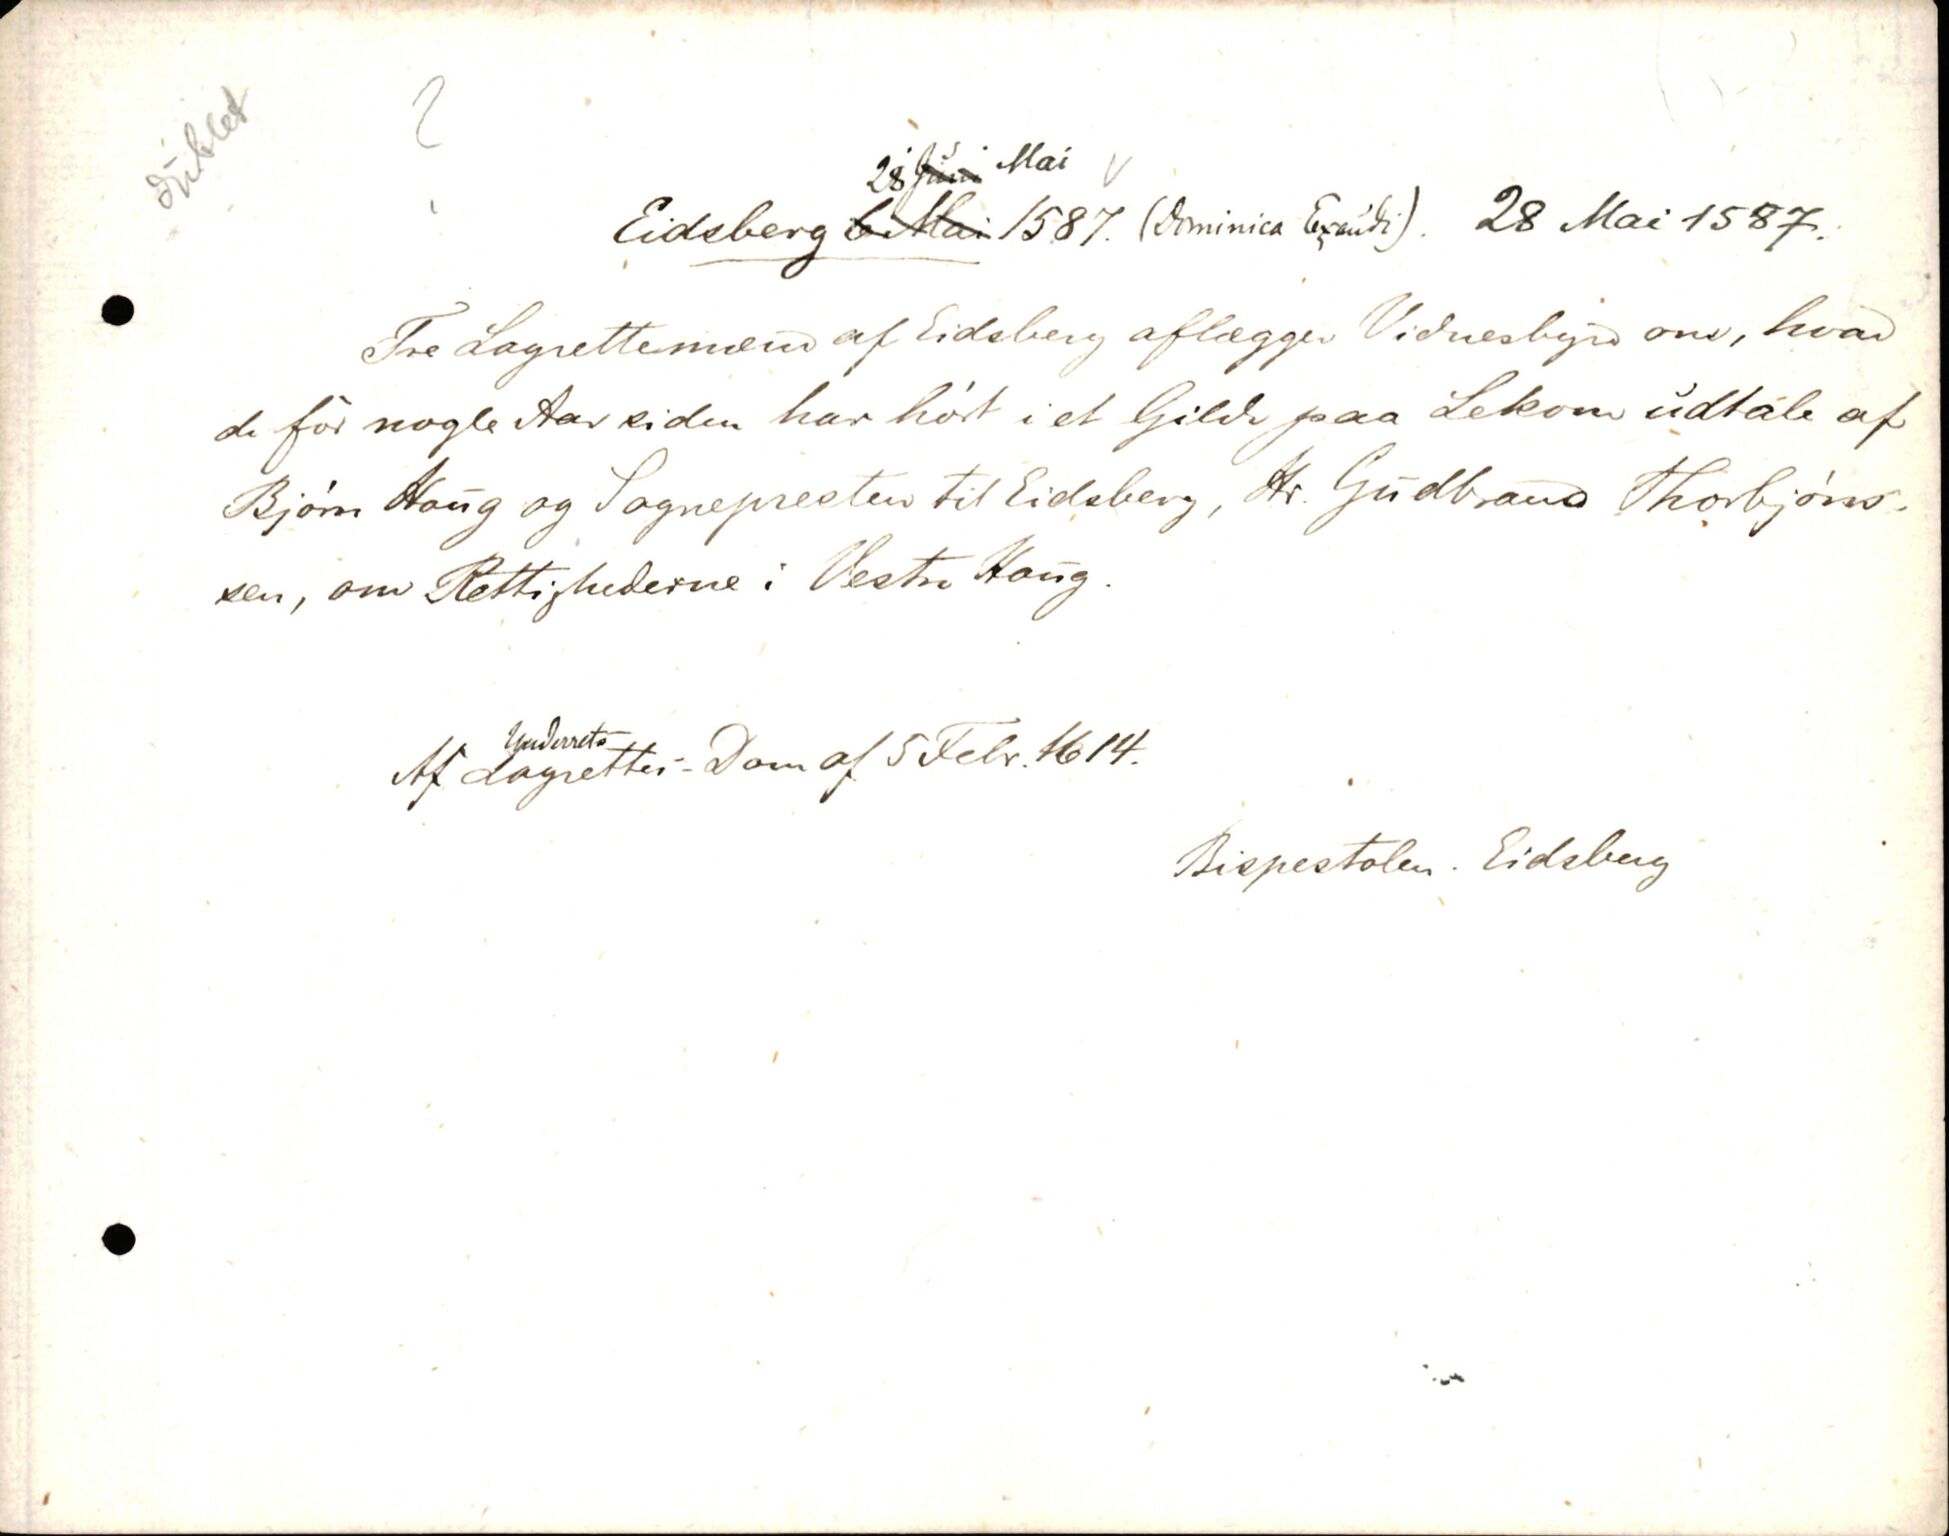 dublet
?
28 Juni Mai V
Eidsberg 6 Mai 1587. (Dominica Exaudi). 28 Mai 1587.
Tre Lagrettemænd af Eidsberg aflægger Vidnesbyrd om, hvad
de før nogle Aar siden har hørt i et Gilde paa Lekom udtale af
Bjørn Haug og Sognepresten til Eidsberg, Hr. Gudbrand Thorbjørns-
sen, om Rettighederne i Vestre Haug.
Underrets
Af Lagrettes-Dom af 5 Febr. 1614.
Bispestolen. Eidsberg